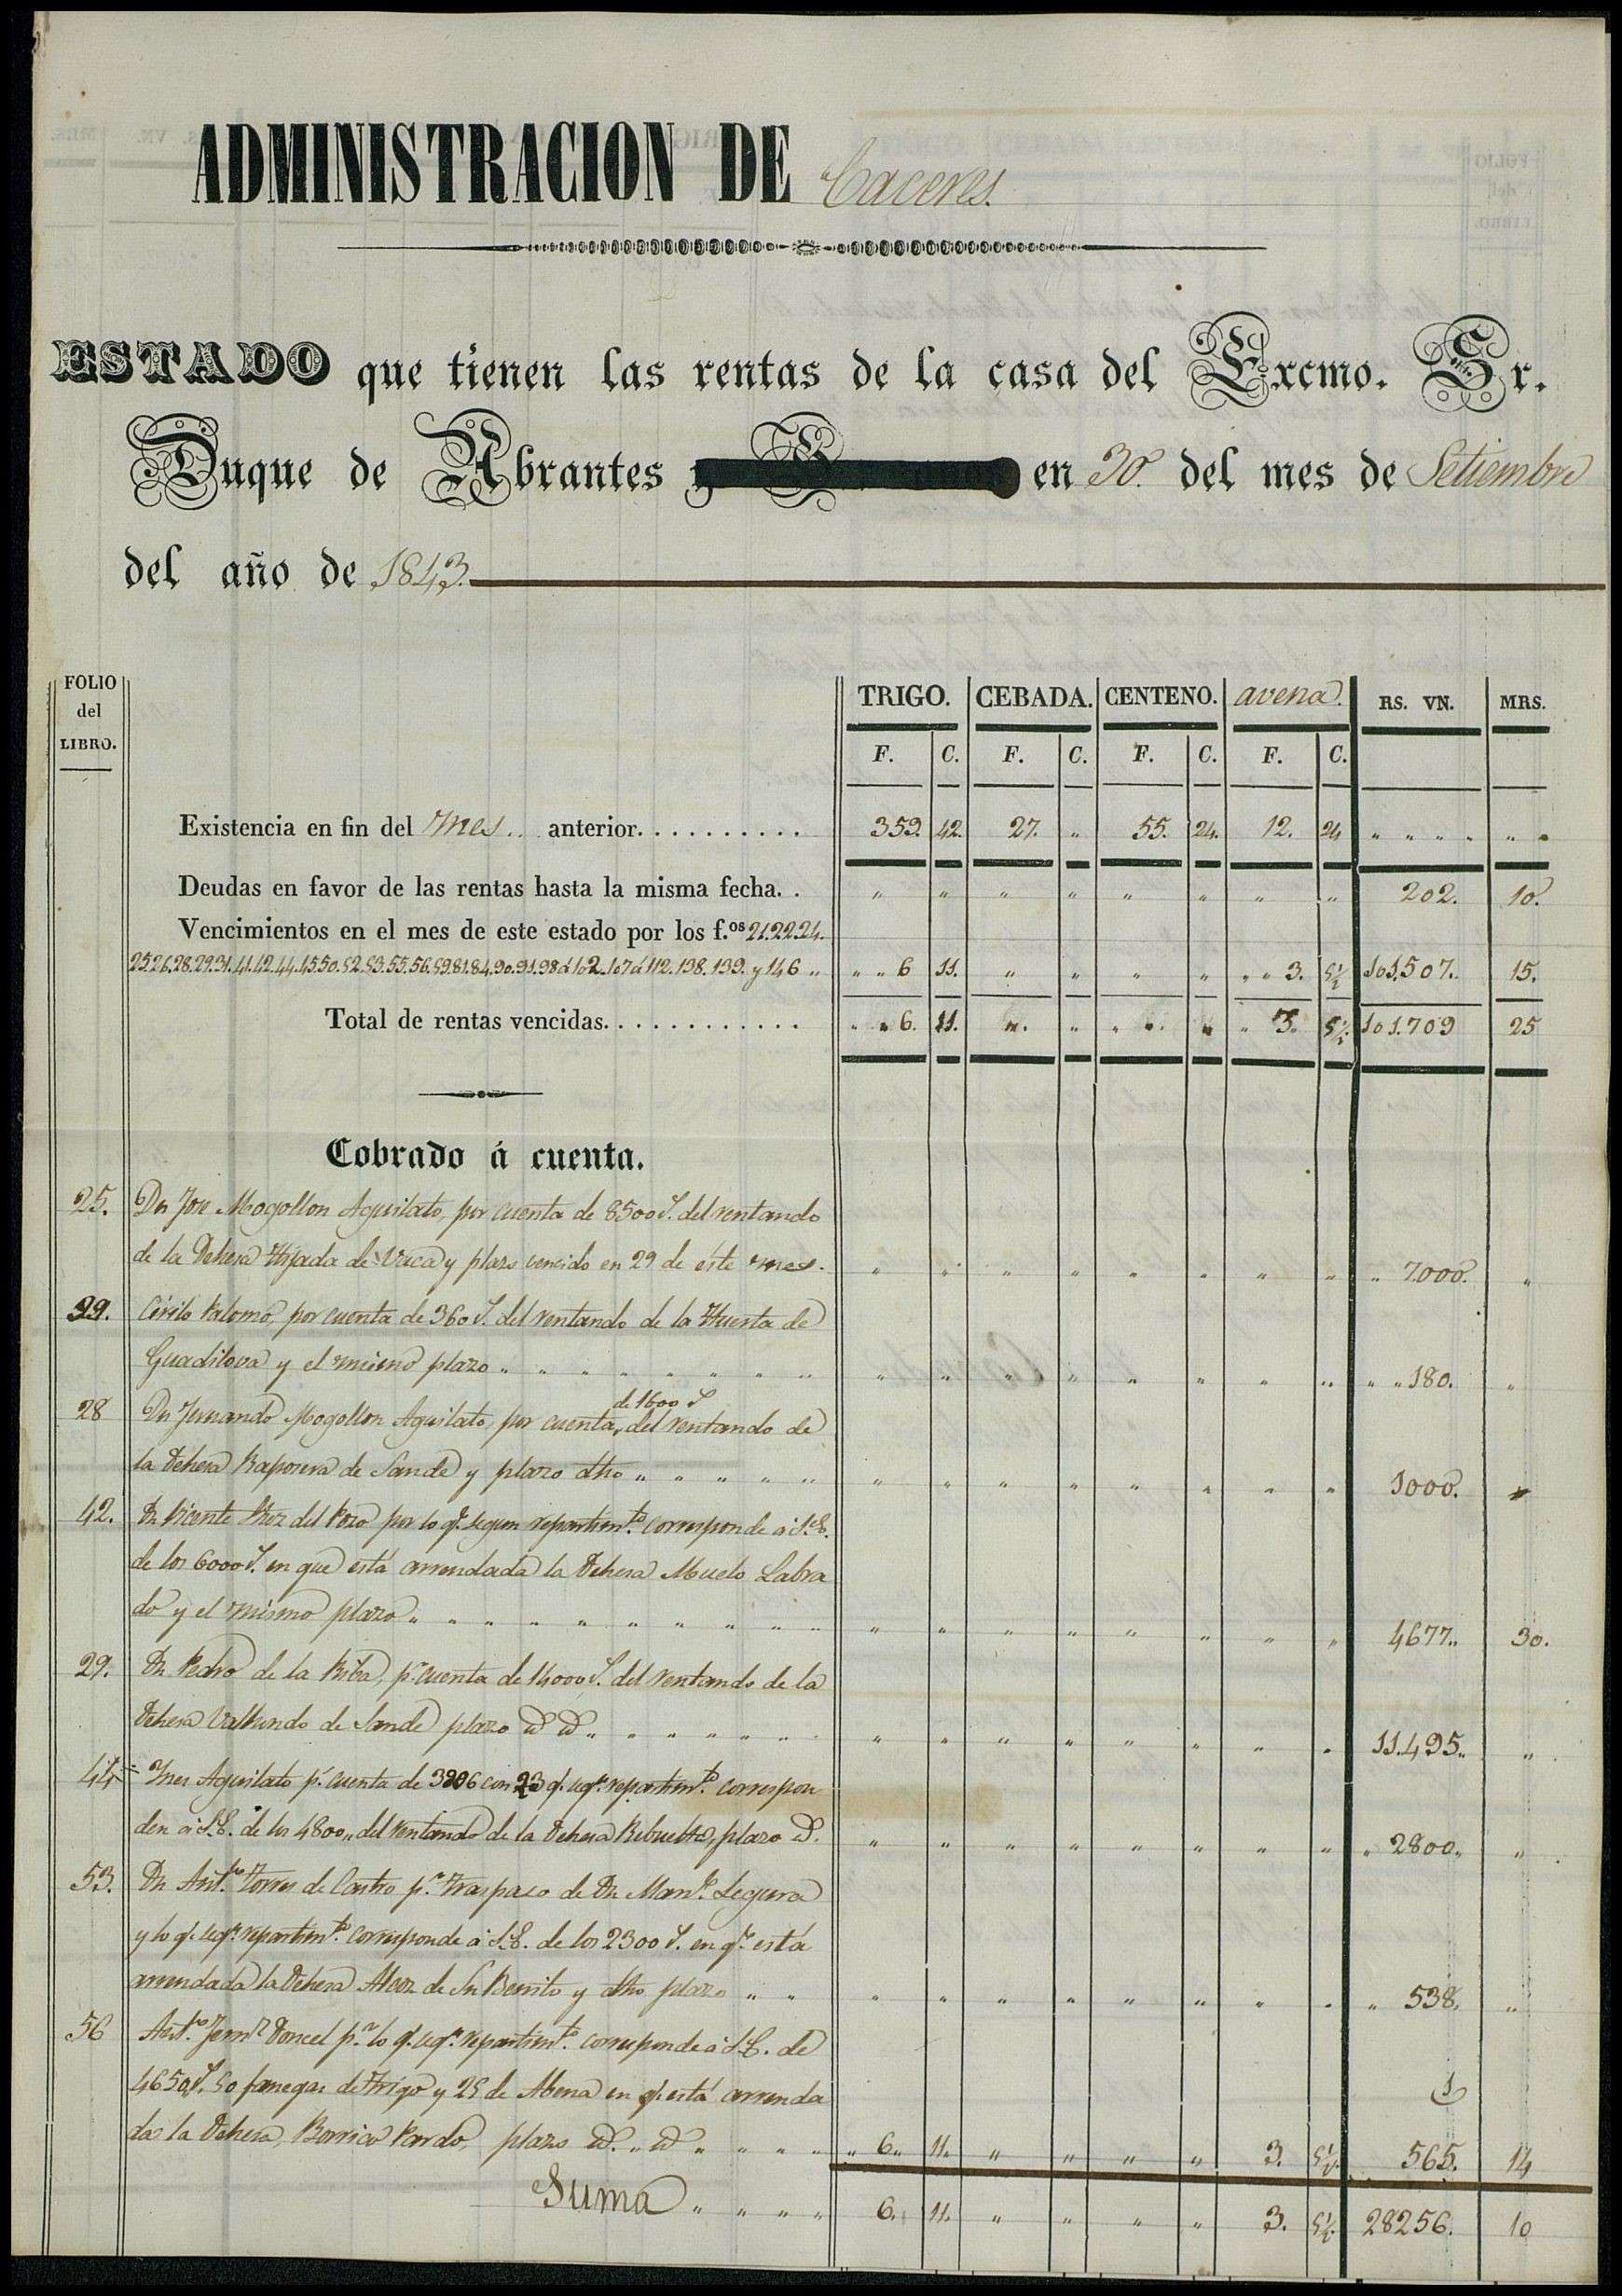 ADMINISTRACION DE Caceres.
ESTADO que tienen las rentas de la casa del Excmo. Sr.
Duque de Abrantes en 30. del mes de Setiembre
del año de 1843.
FOLIO del LIBRO. TRIGO. CEBADA. CENTENO. avena. RS. VN. MRS.
F. C. F. C. F. C. F. C.
Existencia en fin del mes.. anterior.......... 359. 42. 27. „ 55. 24. 12. 24 „ „ „ „ „ „
Deudas en favor de las rentas hasta la misma fecha. . „ „ „ „ „ „ „ „ 202. 10.
Vencimientos en el mes de este estado por los f.os 21.22.24.
25.26.28.29.31.41.42.44.45.50.52.53.55.56.59.81.84.90.91.98 á 102.107 á 112.138.139. y 146 „ „ „ 6 11. „ „ „ „ „ „ 3. 5½ 101,507.. 15.
Total de rentas vencidas............ „ „ 6. 11. „. „ „ „. „ „ 3. 5½. 101.709 25
Cobrado á cuenta.
25. Dn Jose Mogollon Aguilato, por cuenta de 8500 r. del rentando
de la Dehesa Hijada de Vaca y plazo vencido en 29 de éste mes. „ „ „ „ „ „ „ „ „ 7.000. „
39. Cirilo Palomo, por cuenta de 360 r. del rentando de la Huerta de
Guadilova y el mismo plazo „ „ „ „ „ „ „ „ „ „ „ „ „ „ „ „ „ „ 180. „
de 1600 r
28 Dn Fernando Mogollon Aguilato, por cuenta, del rentando de
la Dehesa Raposera de Sande y plazo dho „ „ „ „ „ „ „ „ „ „ „ „ „ 1000. „
42. Dn Vicente Hrz del Pozo por lo q.e segun repartim.to corresponde á S.E.
de los 6000 r. en que está arrendada la Dehesa Muelo Labra
do y el mismo plazo „ „ „ „ „ „ „ „ „ „ „ „ „ „ „ „ „ 4677.. 30.
29. Dn Pedro de la Riba, p.r cuenta de 14000 r. del rentando de la
Dehesa Valhundo de Sande plazo id id „ „ „ „ „ „ „ „ „ „ „ „ „ „ 11.495.. „
44 Ines Aguilato p.r cuenta de 3206 con 23 q.e seg.n repartim.to correspon
den á S.E. de los 4800„ del rentando de la Dehesa Rebuelta, plazo id. „ „ „ „ „ „ „ „ „ 2800„ „
53. Dn Ant.o Torres de Castro p.r traspaso de Dn Man.l Segura
y lo q.e seg.n repartim.to corresponde á S.E. de los 2300 r. en q.e está
arrendada la Dehesa Alcor de Sn Benito y dho plazo „ „ „ „ „ „ „ „ „ „ „ 538. „
56 Ant.o Fern.z Doncel p.r lo q.e seg.n repartim.to corresponde á S.E. de
4650 r. 50 fanegas de Trigo y 25 de Abena en q.e está arrenda
da la Dehesa, Borrico Pardo, plazo id. „ id „ „ „ „ „ 6„ 11. „ „ „ „ 3. 5½. 565. 14
Suma „ „ „ „ 6. 11. „ „ „ „ 3. 5½. 28256. 10